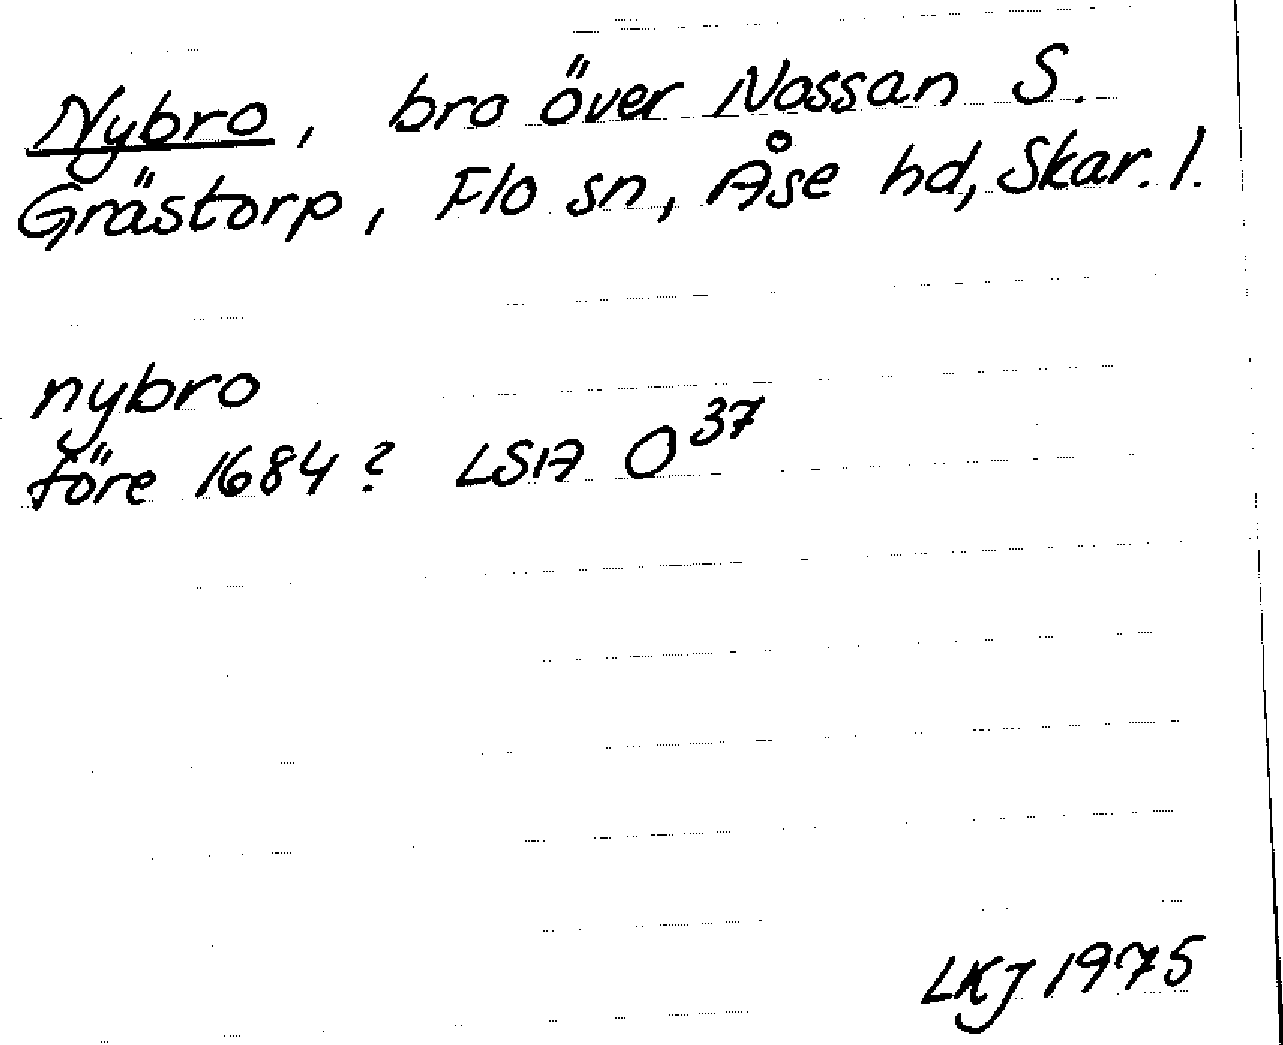 Nybro, bro över Nossan S.
Grästorp, Flo sn, Åse hd, Skar. l.
nybro
före 1684? LSA O37
LKJ 1975